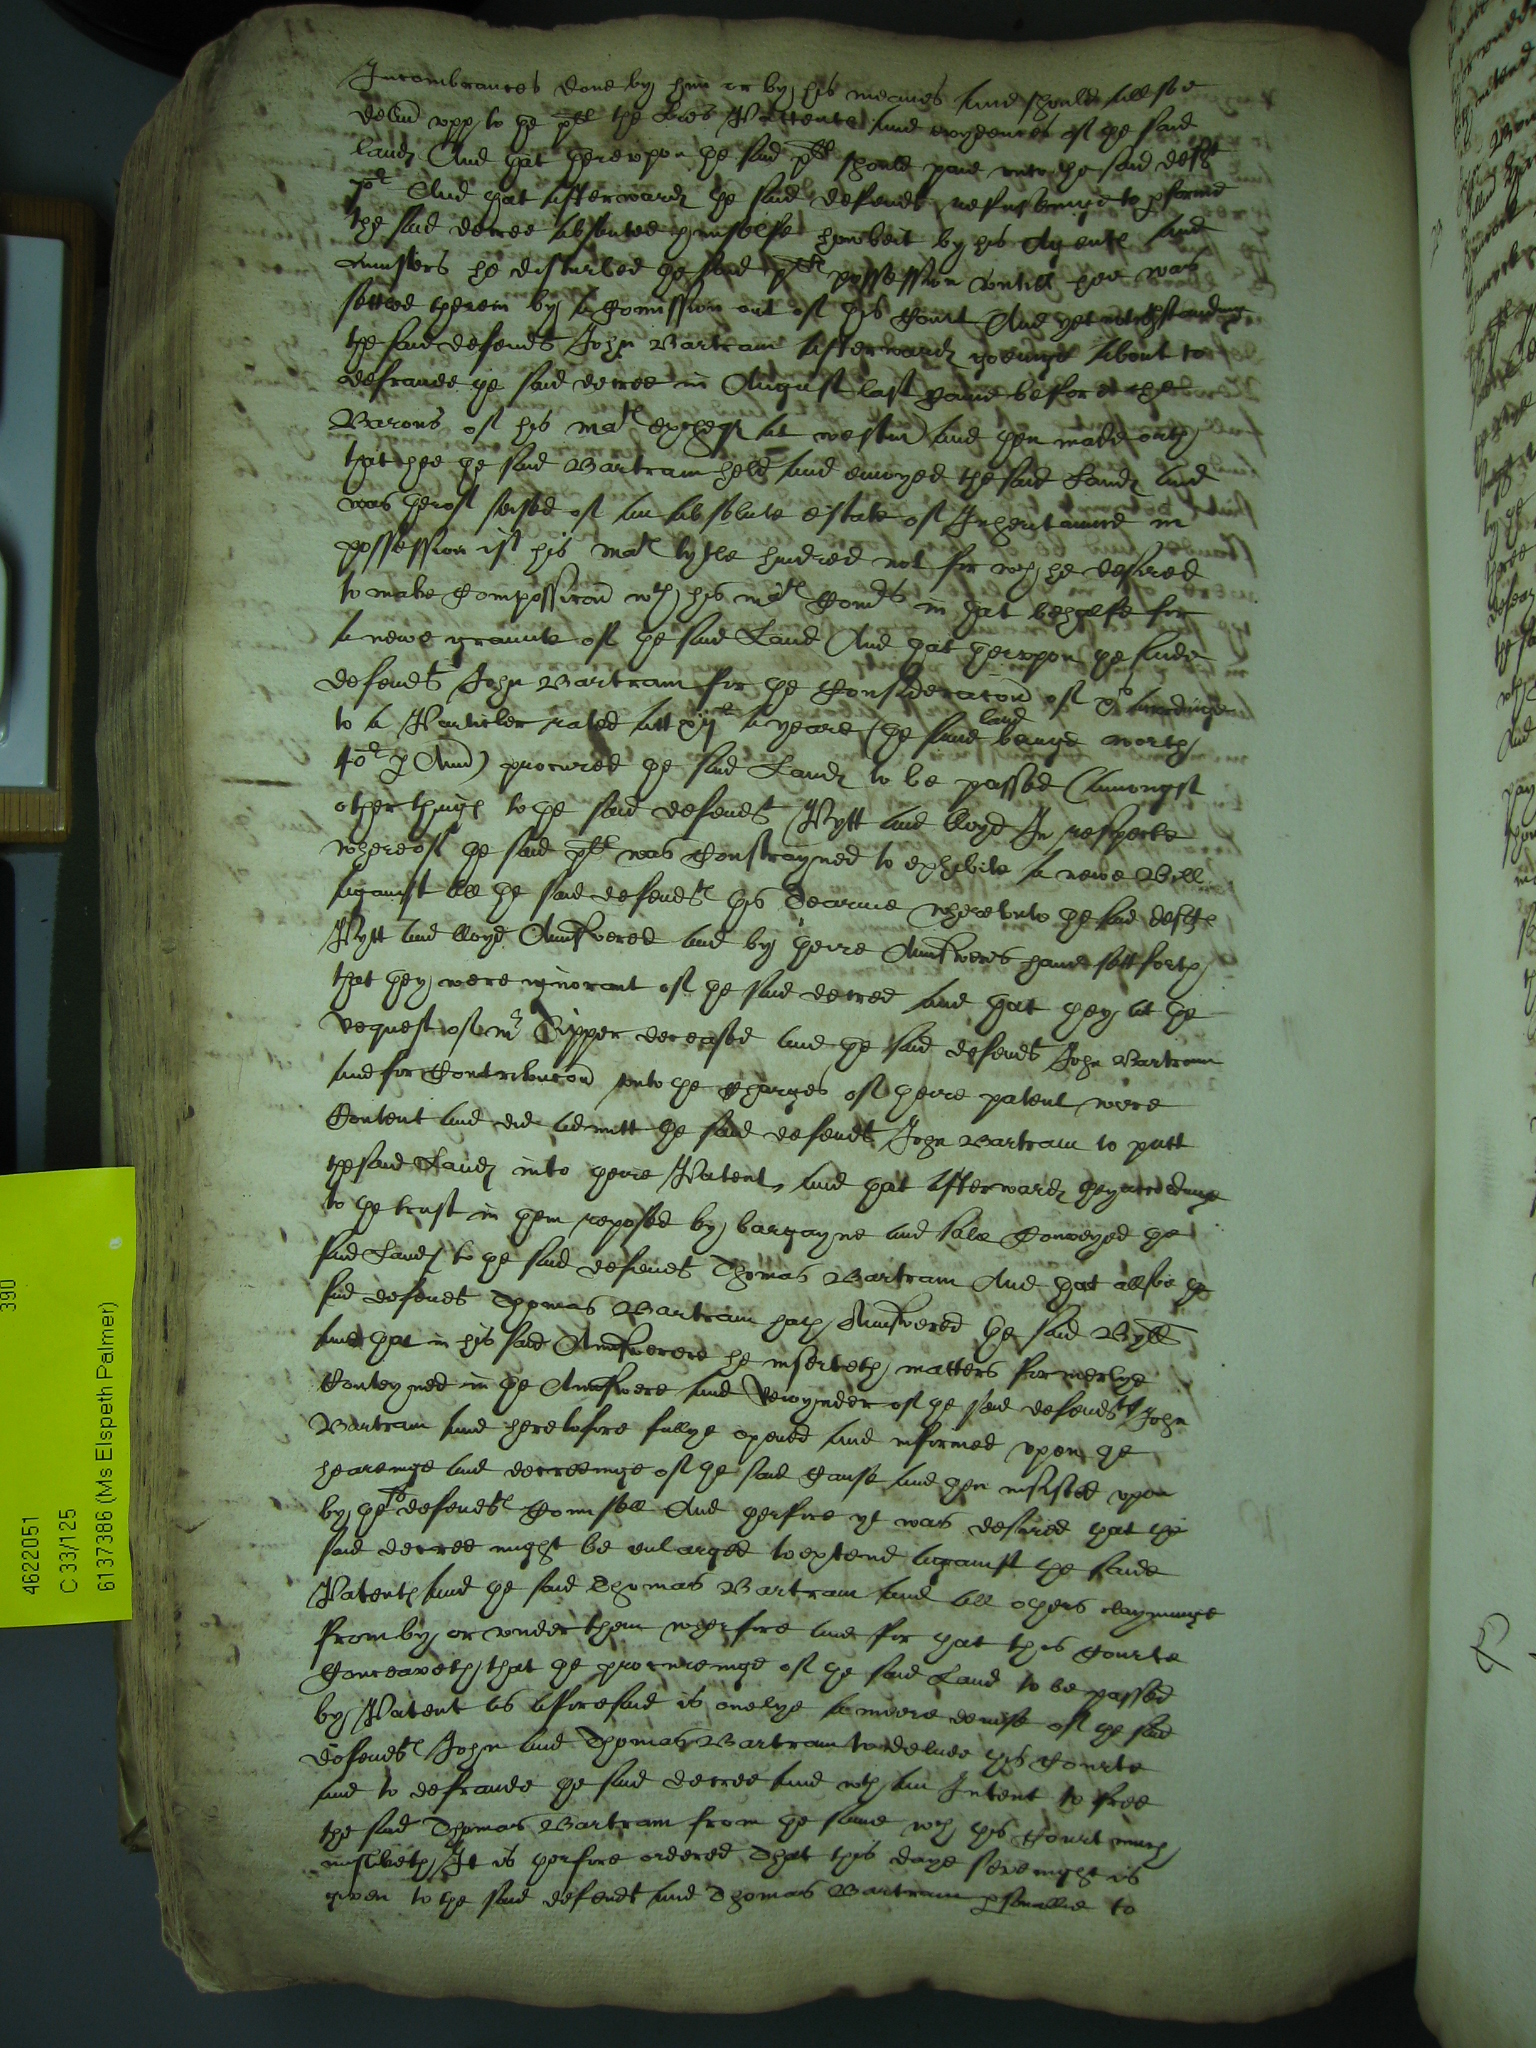 Incombrances done by him or by his meanes and should allsoe
delivd upp to the plt the lres Pattents and evydences of the said
landes And that therevpon the said plt should paie vnto the said deft
And that afterwards the said defendt refuseinge to pforme
the said decree absented himselfe howbeit by his Agentes and
he disturbed the said pltes possession vntill hee was
settled therein by a Comission out of this Court And yet notwthstandinge
the said defendt John Bartram afterwardes goeinge about to
defraude the said decree in August last came before the
Barons of his mates Exchequer at westmr and then made oath
that hee the said Bartram held and enioyed the said Landes and
was therof seised of an absolute estate of Inheritannce in
possession if his mates tytle hindred not for wch he desired
to make Composicion wth his mates Comrs in that behalfe for
a newe graunte of the said Land And that thervpon the saide
defendt John Bartram for the Consideracion of accordinge
to a Particler rated att a yeare (the same land beinge worth
40l p Ann) procured the said Landes to be passed (amongst
other thinges to the said defendts Pytt and lloyd In respecte
whereof the said plt was Constrayned to exhibite a newe Bill
against all the said defendts this Tearme wherevnto the said deftes
Pytt and lloyd Aunswered and by theire Aunsweres haue sett forth
that they were ignorant of the said decree and that they at the
request of mr Tipper deceased and the said defendt John Bartram
and for Contribucion vnto the Charges of theire patent were
Content and did admitt the said defendt John Bartram to putt
the said Landes into theire Patent, and that afterwardes they accordinge
to the trust in them reposed by bargayne and sale Conveyed the
said Landes to the said defendt Thomas Bartram And that allsoe the
said defendt Thomas Bartram hath Aunswered the said Byll
and that in his said Aunswere he inserteth matters formerlye
Conteyned in the Aunswere and Reioynder of the said defendt John
Bartram and heretofore fullye opened and informed vpon the
hearinge and decreeinge of the said Cause and then insisted vpon
by the sd defendtes Counsell And therfore yt was desired that the
said decree might be enlarged to extend against the saide
Patentes and the said Thomas Bartram and all others clayminge
from by or vnder them wherfore and for that this Courte
Conceaveth that the procureinge of the said Land to be passed
by Patent as aforesaid is onelye a meere devise of the said
defendtes John and Thomas Bartram to delude this Courte
and to defraude the said decree and wth an Intent to free
the said Thomas Bartram from the same wch this Court much
mislyketh, It is therfore ordered That this daye sevenight is
given to the said defendt and Thomas Bartram psonallie to
390
4622051
C 33/125
6137386 (Ms Elspeth Palmer)